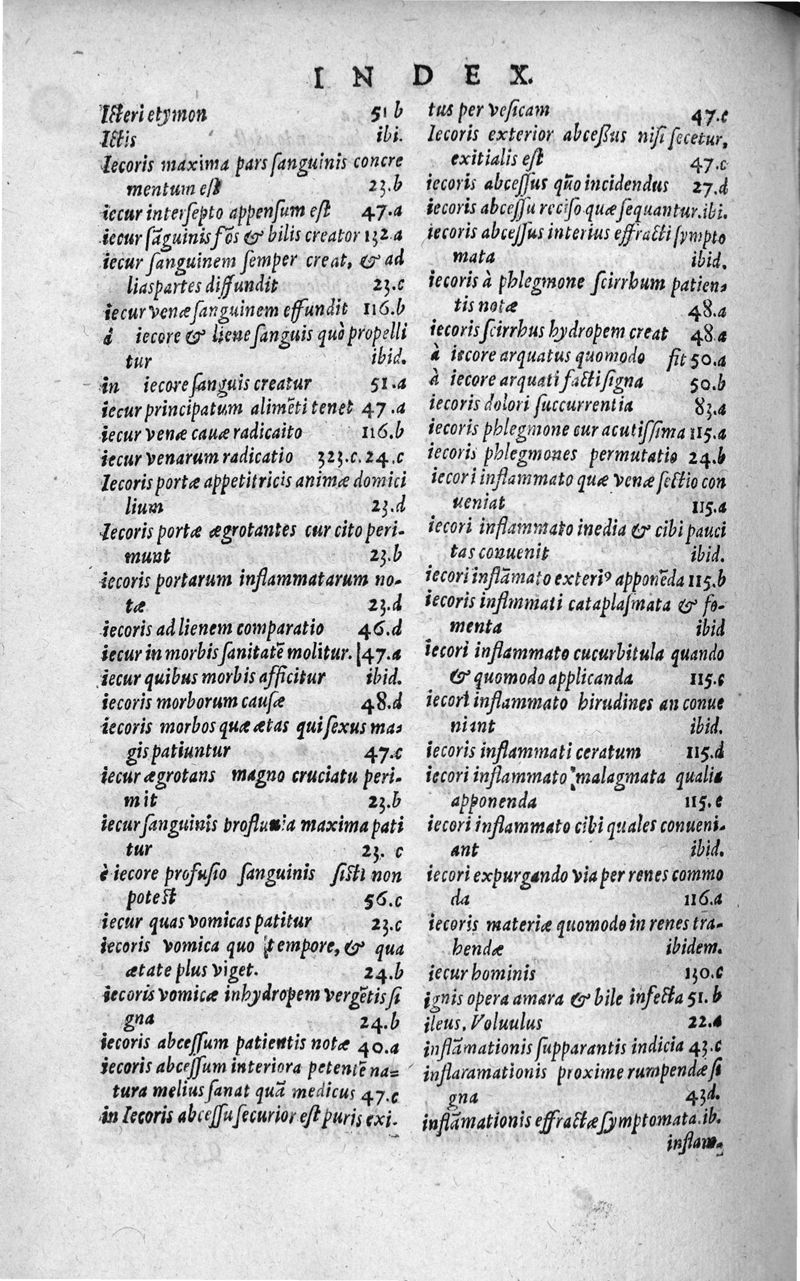 INDEX.
Icteri etymon 51 b
Ictis ibi.
Iecoris maxima pars sanguinis concre
mentum est 23.b
iecur intersepto appensum est 47.a
iecur sāguinis fōs & bilis creator 132 a
iecur sanguinem semper creat, & ad
lias partes diffundit 23.c
iecur venæ sanguinem effundit 116.b
à iecore & liene sanguis quò propelli
tur ibid.
in iecore sanguis creatur 51.a
iecur principatum alimēti tenet 47.a
iecur venæ cauæ radicaito 116.b
iecur venarum radicatio 323.c. 24.c
Iecoris portæ appetitricis animæ domici
lium 23.d
Iecoris portæ ægrotantes cur cito peri-
munt 23.b
iecoris portarum inflammatarum no-
tæ 23.d
iecoris ad lienem comparatio 46.d
iecur in morbis sanitatē molitur. 47.a
iecur quibus morbis afficitur ibid.
iecoris morborum causæ 48.d
iecoris morbos quæ ætas qui sexus ma-
gis patiuntur 47.c
iecur ægrotans magno cruciatu peri-
mit 23.b
iecur sanguinis profluuia maxima pati
tur 23. c
è iecore profusio sanguinis sisti non
potest 56.c
iecur quas vomicas patitur 23.c
iecoris vomica quo tempore, & qua
ætate plus viget. 24.b
iecoris vomicæ in hydropem vergētis si
gna 24.b
iecoris abcessum patientis notæ 40.a
iecoris abcessum interiora petentē na=
tura melius sanat quā medicus 47.c
in Iecoris abcessu securior est puris exi-
tus per vesicam 47.c
Iecoris exterior abceßus nisi secetur,
exitialis est 47.c
iecoris abcessus quō incidendus 27.d
iecoris abcessu reciso quæ sequantur. ibi.
iecoris abcessus interius effracti sympto
mata ibid.
iecoris à phlegmone scirrhum patien-
tis notæ 48.a
iecoris scirrhus hydropem creat 48.a
à iecore arquatus quomodo fit 50.a
à iecore arquati facti signa 50.b
iecoris dolori succurrentia 83.a
iecoris phlegmone cur acutissima 115.a
iecoris phlegmones permutatio 24.b
iecori inflammato quæ venæ sectio con
ueniat 115.a
iecori inflammato inedia & cibi pauci
tas conuenit ibid.
iecori inflāmato exteriꝰ apponēda 115.b
iecoris inflmmati cataplasmata & fo-
menta ibid
iecori inflammato cucurbitula quando
& quomodo applicanda 115.c
iecori inflammato hirudines an conue
niunt ibid.
iecoris inflammati ceratum 115.d
iecori inflammato malagmata qualia
apponenda 115.c
iecori inflammato cibi quales conueni-
ant ibid.
iecori expurgando via per renes commo
da 116.a
iecoris materiæ quomodo in renes tra-
hendæ ibidem.
iecur hominis 130.c
ignis opera amara & bile infecta 51. b
ileus, Voluulus 22.a
inflāmationis supparantis indicia 43.c
inflaramationis proxime rumpendæ si
gna 43d.
inflāmationis effractæ symptomata. ib.
inflam-